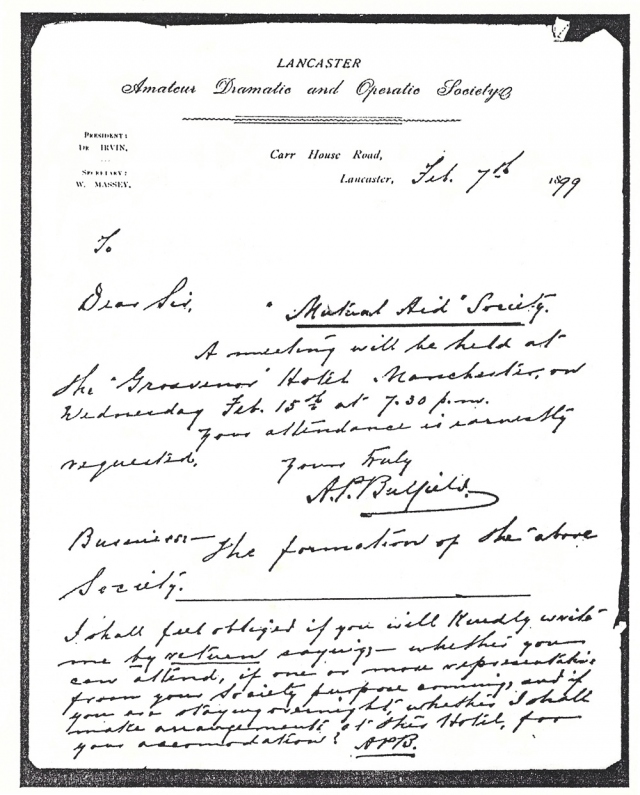 LANCASTER
Amateur Dramatic and Operatic Society
PRESIDENT:
DE IRVIN.
SECRETARY:
W. MASSEY.
Carr House Road,
Lancaster, Feb. 7th 1899
To
Dear Sir,
"Mutual Aid" Society.
A meeting will be held at
the "Grosvenor" Hotel Manchester, on
Wednesday Feb. 15th at 7.30 p.m.
Your attendance is earnestly
requested.
Yours truly
A.P. Bulfield.
Business:— The formation of the above
Society.
I shall feel obliged if you will kindly write
me by return saying:— whether you
can attend, if one or more representative
from your Society purpose coming, and if
you are staying overnight, whether I shall
make arrangements at this Hotel, for
your accomodation? APB.